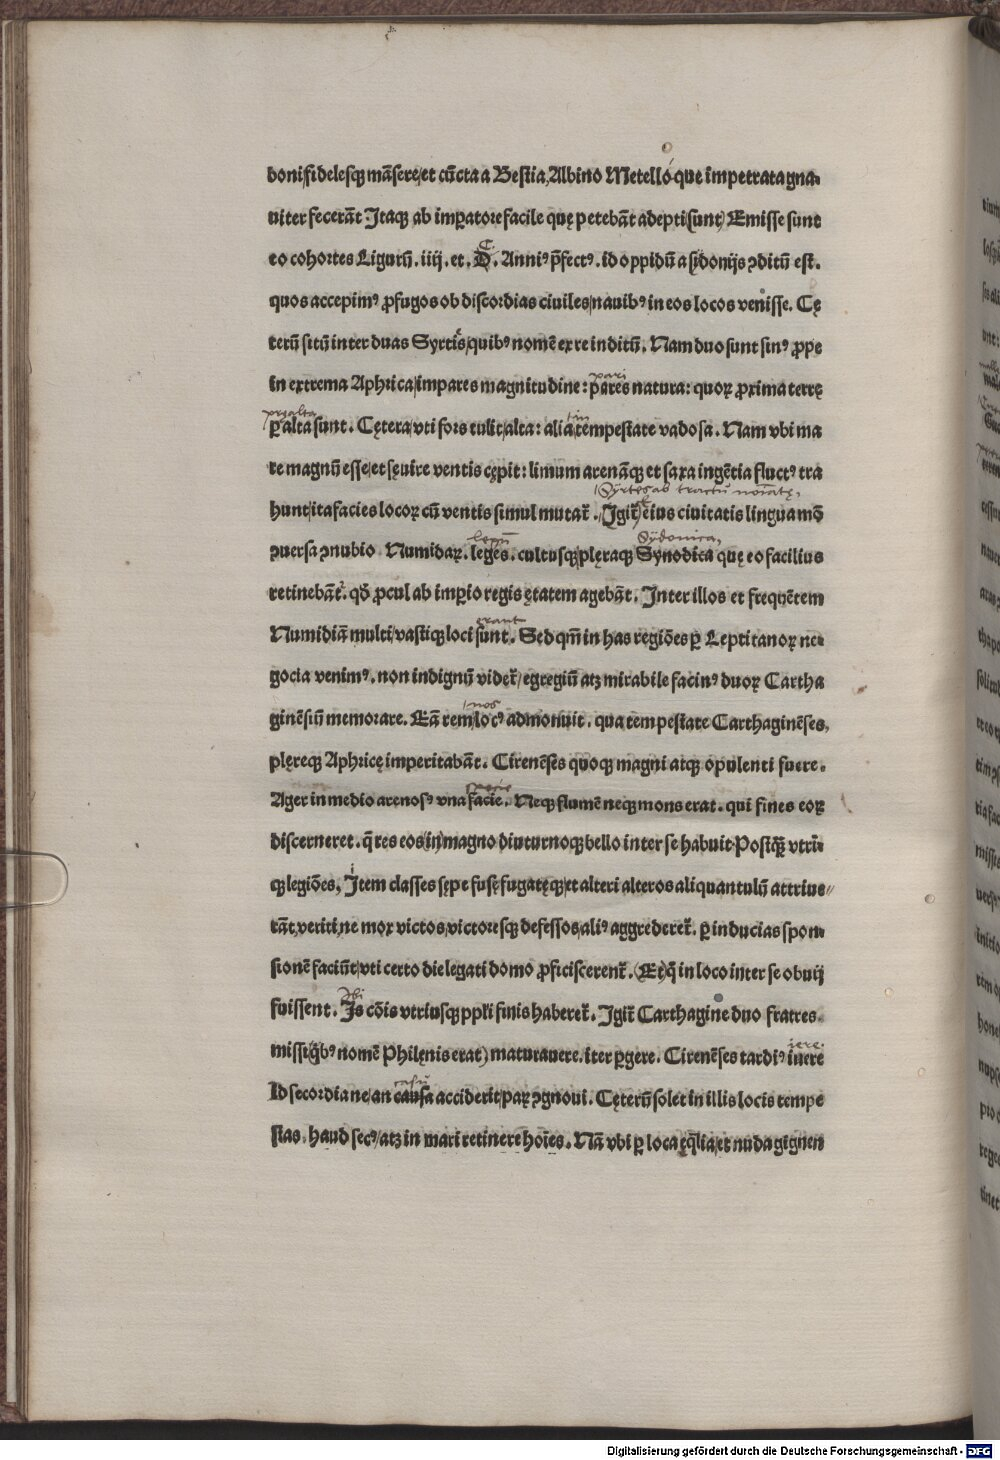 boni, fidelesqꝫ mãsere, et cũcta a Bestia, Albino Metello que impetrata gna-
uiter fecerãt Itaqꝫ ab imꝑatore facile quę petebãt adepti (sunt) Emisse sunt
C.
eo cohortes Ligurũ. iiij. et. D. Anniꝰ p̃fectꝰ. id oppidũ a sydonijs ꝯditũ est.
quos accepimꝰ ꝓfugos ob discordias ciuiles, nauibꝰ in eos locos venisse. Cę
terũ sitũ inter duas Syrtis, quibꝰ nomẽ ex re inditũ. Nam duo sunt sinꝰ ꝓpe
in extrema Aphrica, impares magnitudine: pares natura: quoꝝ ꝓxima terrę
pari
pręalta
ꝑ alta sunt. Cętera, vti fors tulit, alta: alia tempestate vadosa. Nam vbi ma
in
re magnũ esse, et sęuire ventis cępit: limum arenãqꝫ et saxa ingẽtia fluctꝰ tra
Syrtes ab tractu noĩatę,
hunt, ita facies locoꝝ cũ ventis simul mutat̃. Igit̃ eius ciuitatis lingua mõ
ꝯuersa ꝯnubio Numidaꝝ. leges. cultusqꝫ plęraqꝫ Synodica quę eo facilius
legũ
Sydonica,
retinebãt. qđ ꝓcul ab imꝑio regis ętatem agebãt. Inter illos et frequẽtem
Numidiã multi, vastiqꝫ loci sunt. Sed qm̃ in has regiões ꝑ Leptitanoꝝ ne-
erant
gocia venimꝰ. non indignũ videt̃, egregiũ atꝫ mirabile facinꝰ duoꝝ Cartha
ginẽsiũ memorare. Eã rem, locꝰ admonuit. qua tempestate Carthaginẽses,
nos
plęreqꝫ Aphricę imperitabãt. Cirenẽses quoqꝫ magni atqꝫ opulenti fuere.
Ager in medio arenosꝰ vna facie. Neqꝫ flumẽ neqꝫ mons erat. qui fines eoꝝ
discerneret. q̃ res eos in magno diuturnoqꝫ bello inter se habuit. Postq̃ꝫ vtrĩ-
qꝫ legiões, Item classes sępe fusę fugatęqꝫ, et alteri alteros aliquantulũ attriue-
rãt, veriti, ne mox victos, victoresqꝫ defessos, aliꝰ aggrederet̃. ꝑ inducias spon-
sionẽ faciũt, vti certo die legati domo ꝓficiscerent̃. (Et) q̃ in loco inter se obuij
fuissent. Is cõis vtriusqꝫ pp̃li finis haberet̃. Igit̃ Carthagine duo fratres
Ibi
missi (q̃bꝰ nomẽ Philęnis erat) maturauere. iter ꝑgere. Cirenẽses tardiꝰ iuere
iere.
Id secordia ne, an causa acciderit, paꝝ ꝯgnoui. Cęterũ solet in illis locis tempe
casu
stas. haud secꝰ, atꝫ in mari retinere hoĩes. Nã vbi ꝑ loca ęq̃lia, et nuda gignen
Digitalisierung gefördert durch die Deutsche Forschungsgemeinschaft - DFG